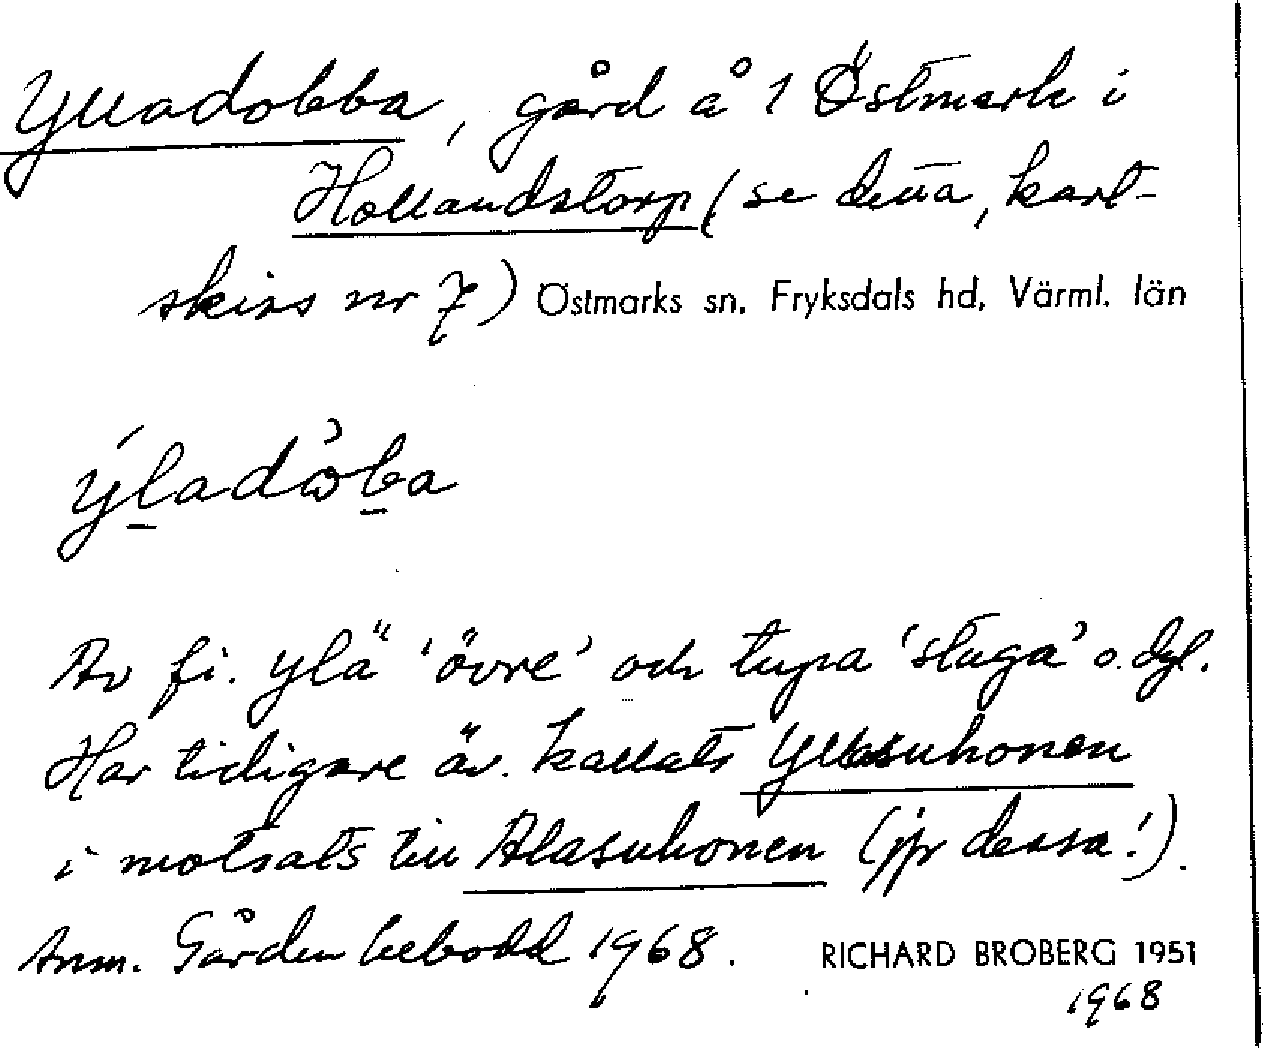 Ylladobba, gård å 1 Östmark i
Hollandstorp (se detta, kart-
skiss nr 7) Östmarks sn, Fryksdals hd, Värml. län
ýladòba
Av fi. ylä 'övre' och tupa 'stuga' o. dyl.
Har tidigare äv. kallats Ylläsuhonen
i motsats till Alasuhonen (jfr dessa!).
Anm. Gården bebodd 1968.
RICHARD BROBERG 1951
1968